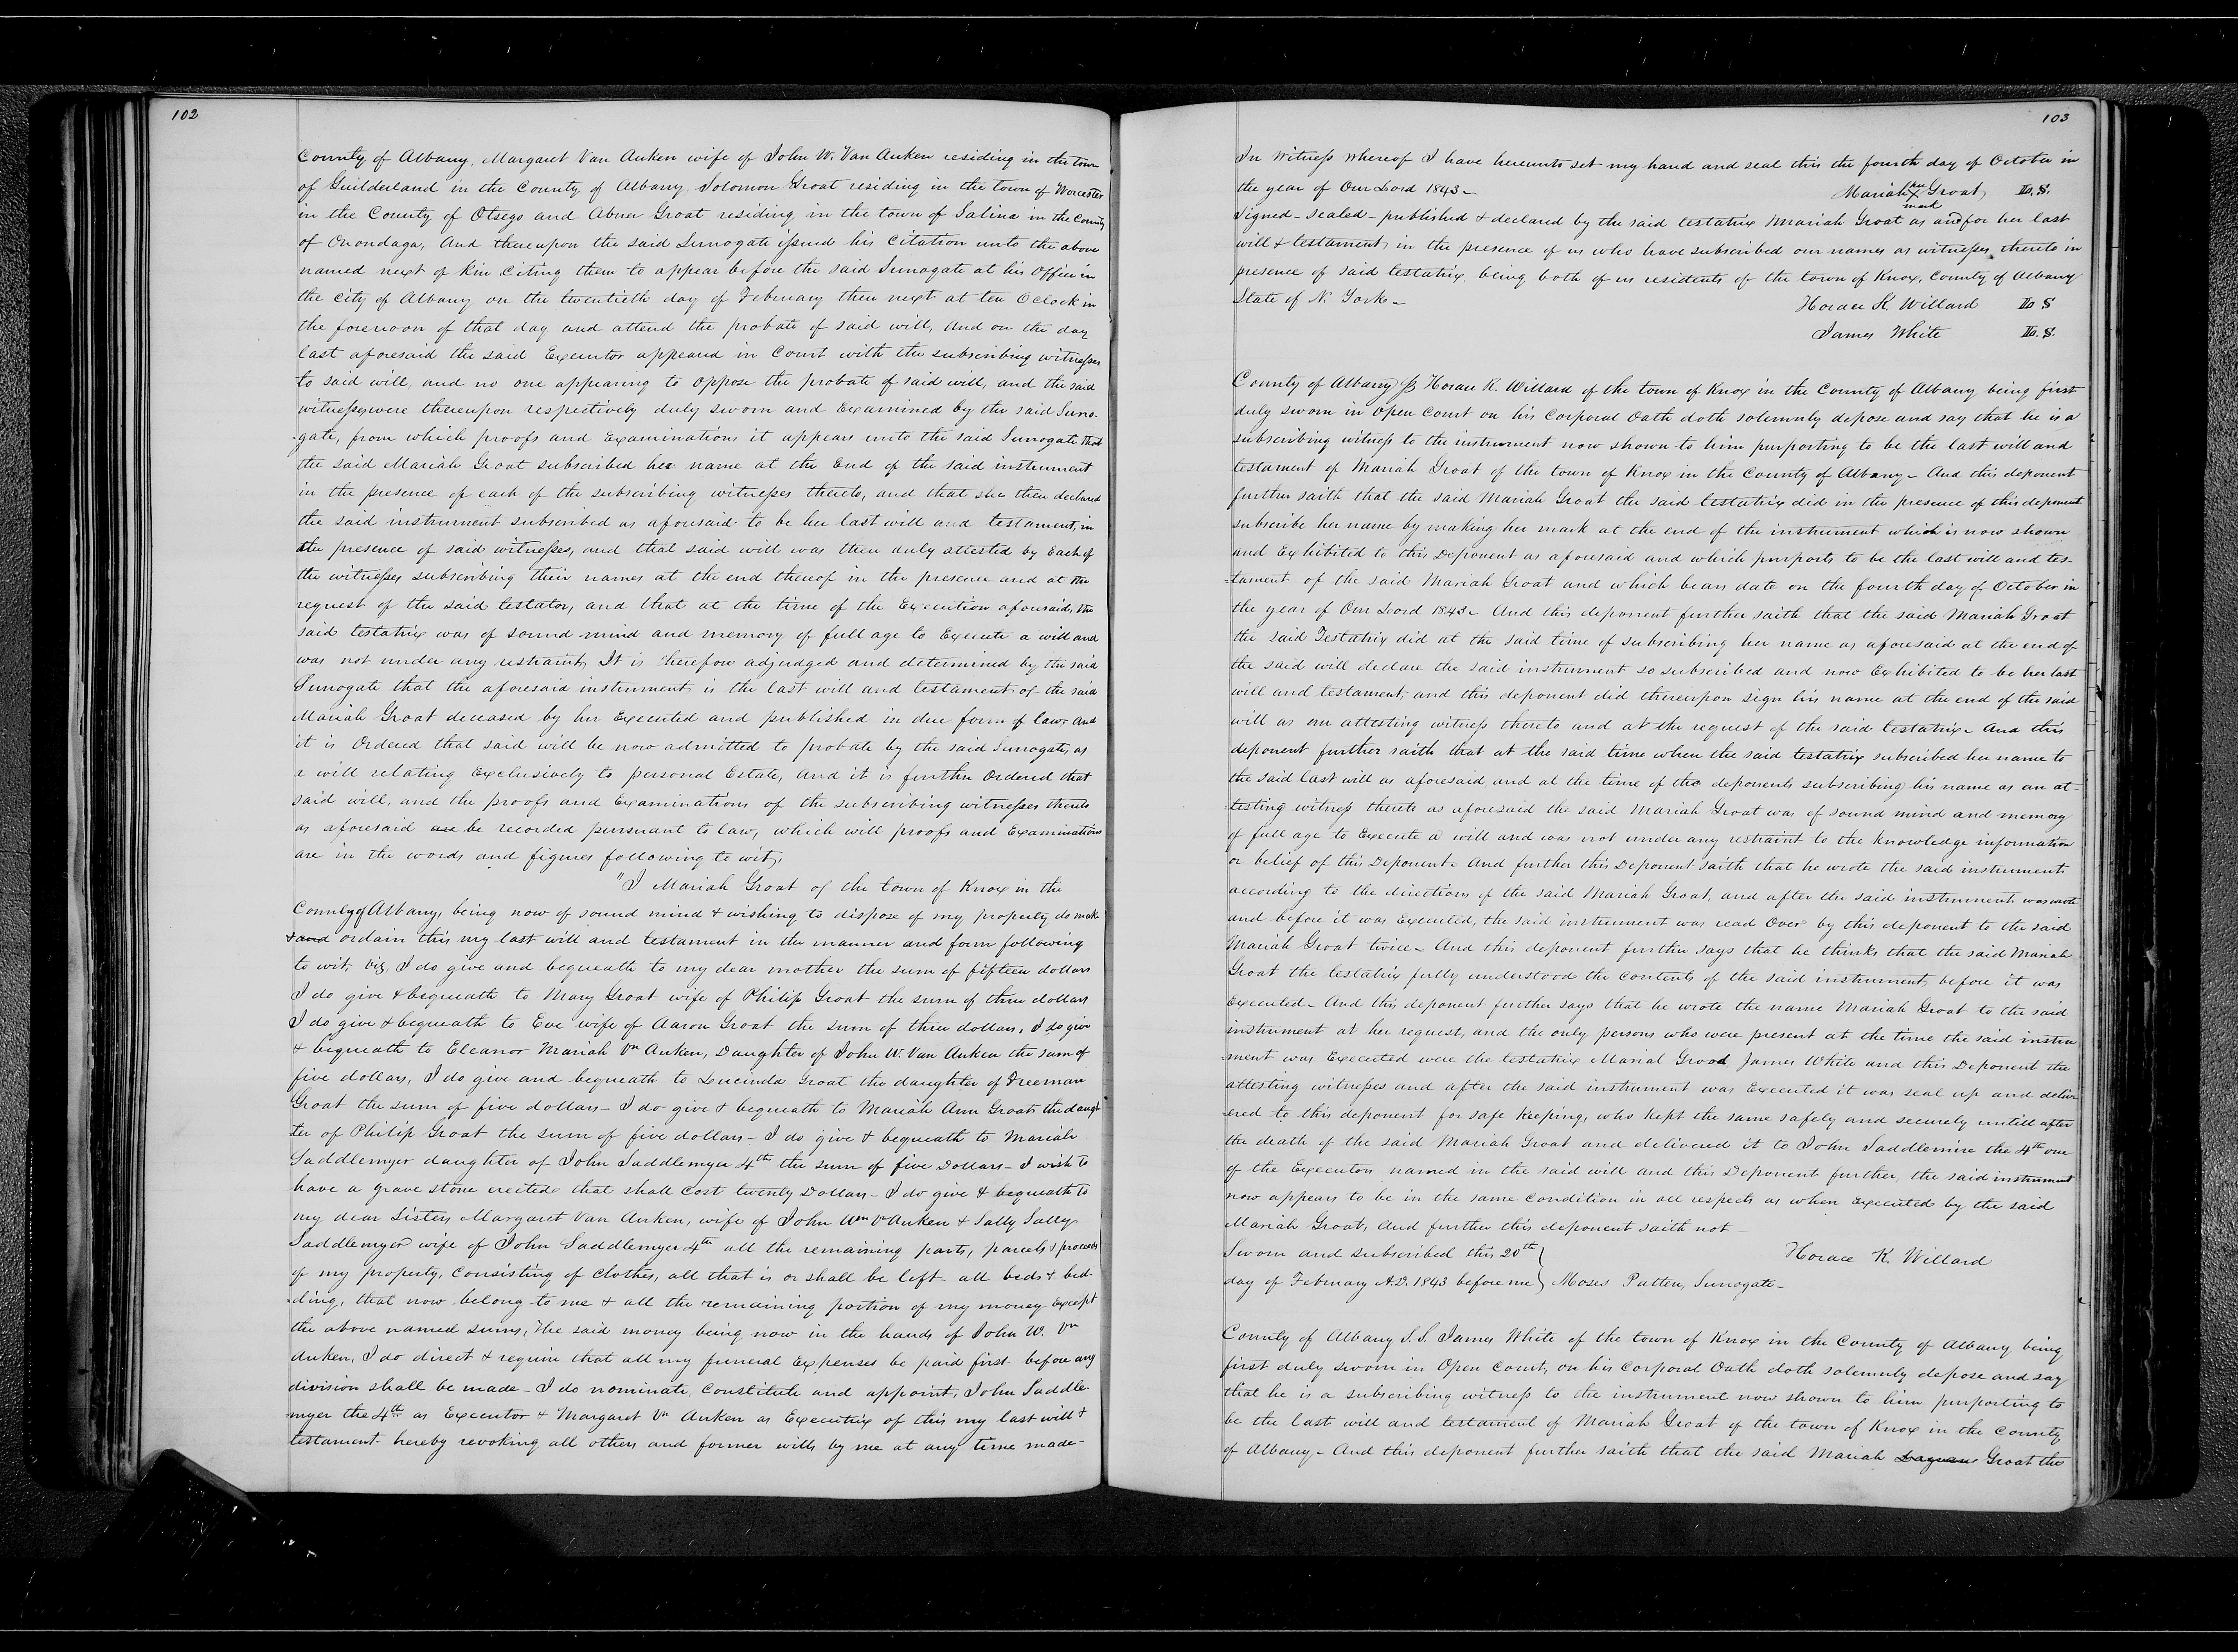 102
County of Albany, Margaret Van Auken wife of John W. Van Auken residing in the town
of Guilderland in the County of Albany. Solomon Groat residing in the town of Worcester
in the County of Otsego and Abner Groat residing in the town of Salina in the County
of Onondaga, And thereupon the said Surrogate issued his Citation unto the above
named next of kin Citing them to appear before the said Surrogate at his Office in
the City of Albany on the twentieth day of February then next at ten Oclock in
the forenoon of that day and attend the probate of said will, And on the day
last aforesaid the said Executor appeared in Court with the subscribing witnesses
to said will, and no one appearing to oppose the probate of said will, and the said
witnesses were thereupon respectively duly sworn and Examined by the said Surro-
-gate, from which proofs and Examinations it appears unto the said Surrogate that
the said Mariah Groat subscribed her name at the End of the said instrument
in the presence of each of the subscribing witnesses thereto, and that she then declared
the said instrument subscribed as aforesaid to be her last will and testament, in
the presence of said witnesses, and that said will was then duly attested by Each of
the witnesses subscribing their names at the end thereof in the presence and at the
request of the said testator, and that at the time of the Execution aforesaid, the
said testatrix was of sound mind and memory of full age to Execute a will and
was not under any restraint, It is therefore adjudged and determined by the said
Surrogate that the aforesaid instrument is the last will and testament of the said
Mariah Groat deceased by her Executed and published in due form of law, And
it is Ordered that said will be now admitted to probate by the said Surrogate, as
a will relating Exclusively to personal Estate, And it is further Ordered that
said will, and the proofs and Examinations of the subscribing witnesses thereto
as aforesaid are be recorded pursuant to law, which will proofs and Examinations
are in the words and figures following to wit,
"I Mariah Groat of the town of Knox in the
County of Albany, being now of sound mind & wishing to dispose of my property do make
& and ordain this my last will and testament in the manner and form following
to wit, viz, I do give and bequeath to my dear mother the sum of fifteen dollars
I do give & bequeath to Mary Groat wife of Philip Groat the sum of three dollars
I do give & bequeath to Eve wife of Aaron Groat the sum of three dollars, I do give
& bequeath to Eleanor Mariah Vn Auken, Daughter of John W. Van Auken the sum of
five dollars, I do give and bequeath to Lucinda Groat the daughter of Freeman
Groat the sum of five dollars - I do give & bequeath to Mariah Ann Groat, the daugh
ter of Philip Groat the sum of five dollars - I do give & bequeath to Mariah
Saddlemyer daughter of John Saddlemyer 4th the sum of five Dollars - I wish to
have a grave stone erected that shall cost twenty Dollars - I do give & bequeath to
my dear Sisters Margaret Van Auken, wife of John Wm Vn Auken & Sally Sally
Saddlemyer wife of John Saddlemyer 4th all the remaining parts, parcels & proceeds
of my property, Consisting of Clothes, all that is or shall be left - all beds & bed-
-ding, that now belong to me & all the remaining portion of my money Except
the above named sums, the said money being now in the hands of John W. Vn
Auken, I do direct & require that all my funeral Expenses be paid first before any
division shall be made - I do nominate, Constitute and appoint, John Saddle-
-myer the 4th as Executor & Margaret Vn Auken as Executrix of this my last will &
testament - hereby revoking all others and former wills by me at any time made -
103
In Witness Whereof I have hereunto set my hand and seal this the fourth day of October in
the year of Our Lord 1843 - Mariah her X mark Groat, L.S.
Signed - Sealed - published & declared by the said testatrix Mariah Groat as and for her last
will & testament, in the presence of us who have subscribed our names as witnesses, thereto in
presence of said testatrix, being both of us residents of the town of Knox, County of Albany
State of N. York - Horace K. Willard L S
James White L.S.
County of Albany Ss Horace K. Willard of the town of Knox in the County of Albany being first
duly sworn in Open Court on his Corporal Oath doth solemnly depose and say that he is a
subscribing witness to the instrument now shown to him purporting to be the last will and
testament of Mariah Groat of the town of Knox in the County of Albany - And this deponent
further saith that the said Mariah Groat the said testatrix did in the presence of this deponent
subscribe her name by making her mark at the end of the instrument which is now shown
and Exhibited to this Deponent as aforesaid and which purports to be the last will and tes-
-tament of the said Mariah Groat and which bears date on the fourth day of October in
the year of Our Lord 1843 - And this deponent further saith that the said Mariah Groat
the said Testatrix did at the said time of subscribing her name as aforesaid at the end of
the said will declare the said instrument so subscribed and now Exhibited to be her last
will and testament, and this deponent did thereupon sign his name at the end of the said
will as an attesting witness thereto and at the request of the said testatrix - And this
deponent further saith that at the said time when the said testatrix subscribed her name to
the said last will as aforesaid, and at the time of the deponents subscribing his name as an at-
-testing witness thereto as aforesaid the said Mariah Groat was of sound mind and memory
of full age to Execute a will and was not under any restraint to the knowledge information
or belief of this Deponent - And further this Deponent saith that he wrote the said instrument
according to the directions of the said Mariah Groat, and after the said instrument was wrote
and before it was Executed, the said instrument was read Over by this deponent to the said
Mariah Groat twice - And this deponent further says that he thinks that the said Mariah
Groat the testatrix fully understood the Contents of the said instrument, before it was
Executed - And this deponent further says that he wrote the name Mariah Groat to the said
instrument at her request, and the only persons who were present at the time the said instru
-ment was Executed were the testatrix Mariah Groat James White and this Deponent the
attesting witnesses and after the said instrument was Executed it was seal up and deliv-
-ered to this deponent for safe keeping, who kept the same safely and securely untill after
the death of the said Mariah Groat and delivered it to John Saddlemire the 4th one
of the Executors named in the said will and this Deponent further, the said instrument
now appears to be in the same Condition in all respects as when Executed by the said
Mariah Groat, And further this deponent saith not
Sworn and subscribed this 20th Horace K. Willard
day of February A.D. 1843 before me Moses Patten, Surrogate -
County of Albany S.S. James White of the town of Knox in the County of Albany being
first duly sworn in Open Court, on his Corporal Oath doth solemnly depose and say
that he is a subscribing witness to the instrument now shown to him purporting to
be the last will and testament of Mariah Groat of the town of Knox in the County
of Albany - And this deponent further saith that the said Mariah Groat the